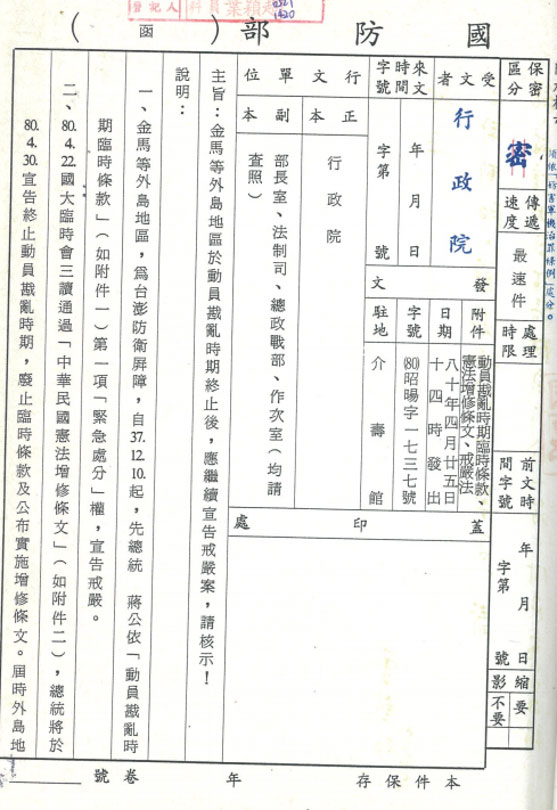 國防部（函）
登記人
科員葉穎
保密區分
密
須依「妨害軍機治罪條例」處分。
傳遞速度
最速件
處理時限
前文時間字號
年月日
字第號
縮影
要
不要
受文者
行政院
來文時間字號
年月日
字第號
發文
附件
動員戡亂時期臨時條款、憲法增修條文、戒嚴法
日期
八十年四月廿五日十四時發出
字號
(80)昭暘字一七三七號
駐地
介壽館
行文單位
正本
行政院
副本
部長室、法制司、總政戰部、作次室（均請查照）
蓋印處
主旨：金馬等外島地區於動員戡亂時期終止後，應繼續宣告戒嚴案，請核示！
說明：
一、金馬等外島地區，為台澎防衛屏障，自37.12.10.起，先總統　蔣公依「動員戡亂時
期臨時條款」（如附件一）第一項「緊急處分」權，宣告戒嚴。
二、80.4.22.國大臨時會三讀通過「中華民國憲法增修條文」（如附件二），總統將於
80.4.30.宣告終止動員戡亂時期，廢止臨時條款及公布實施增修條文。屆時外島地
本件保存　年　卷號